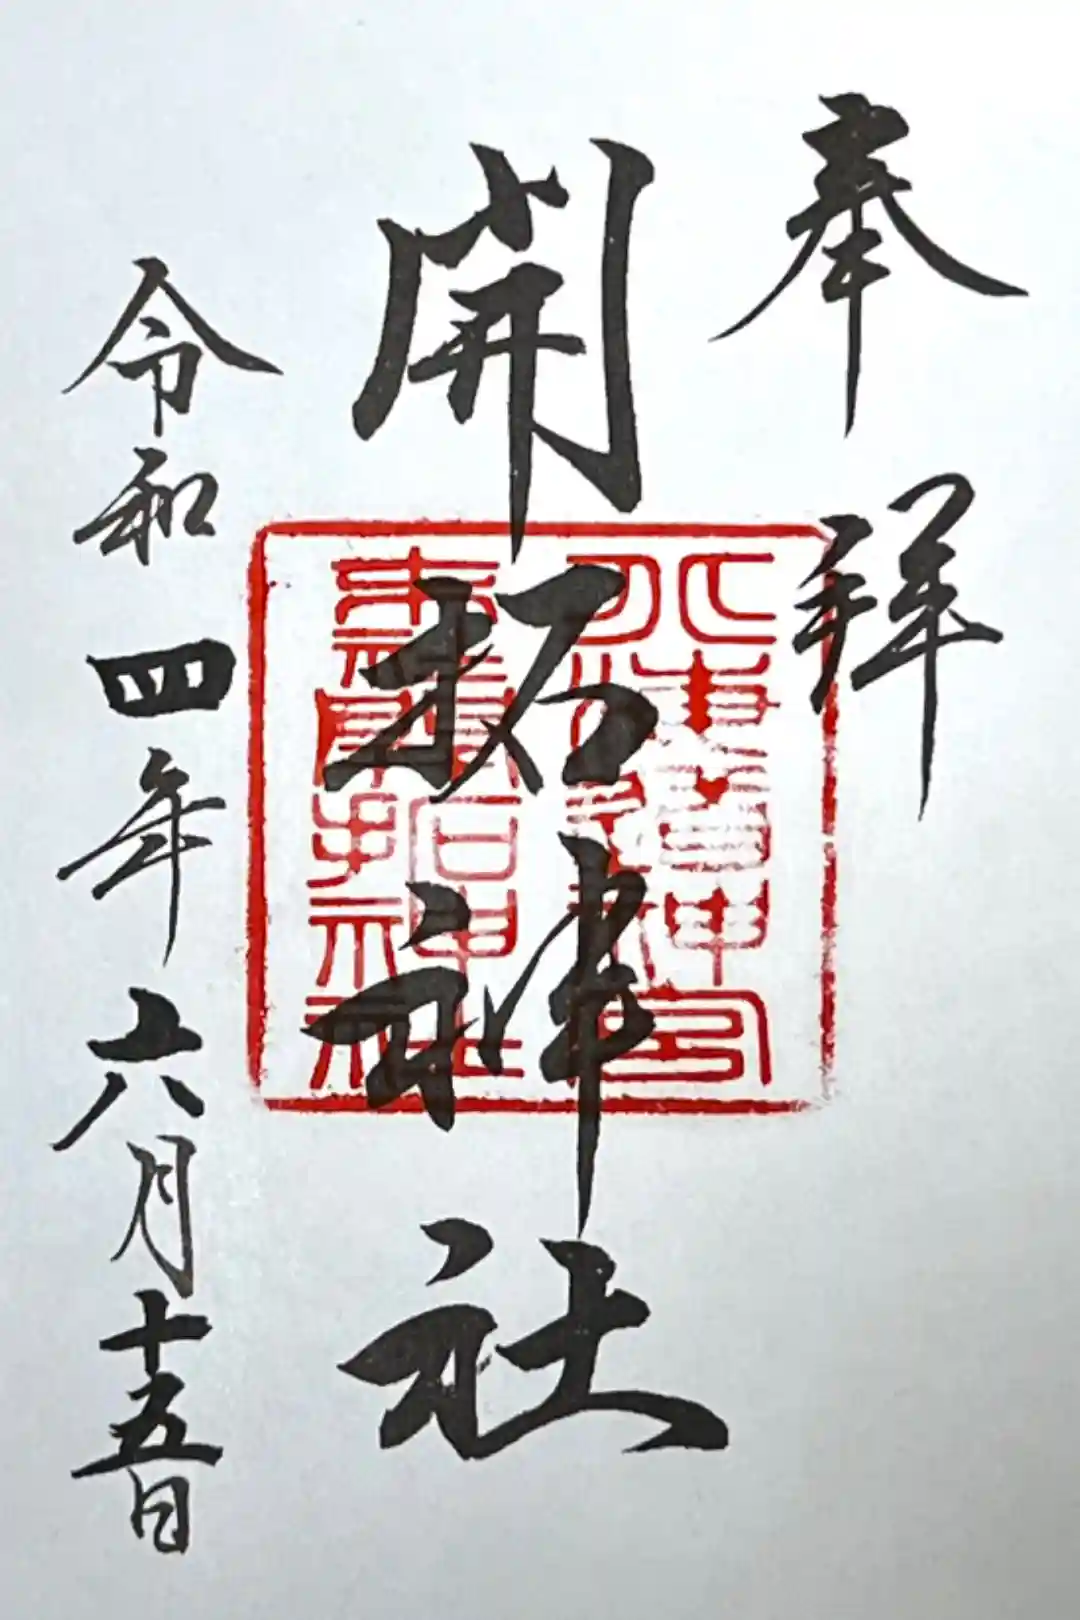 奉拝
開拓神社
令和四年六月十五日
北海道神宮
末社開拓神社